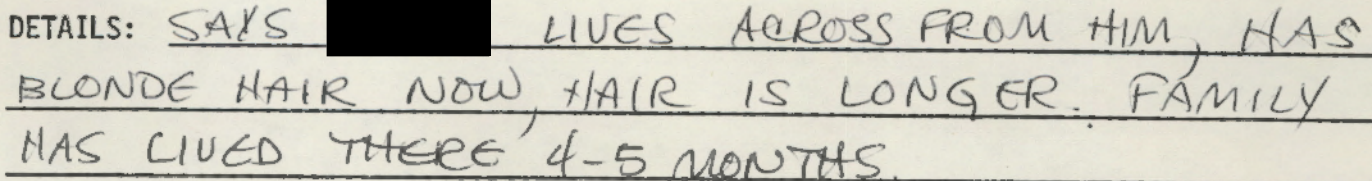 DETAILS: SAYS LIVES ACROSS FROM HIM, HAS
BLONDE HAIR NOW, HAIR IS LONGER. FAMILY
HAS LIVED THERE 4-5 MONTHS.